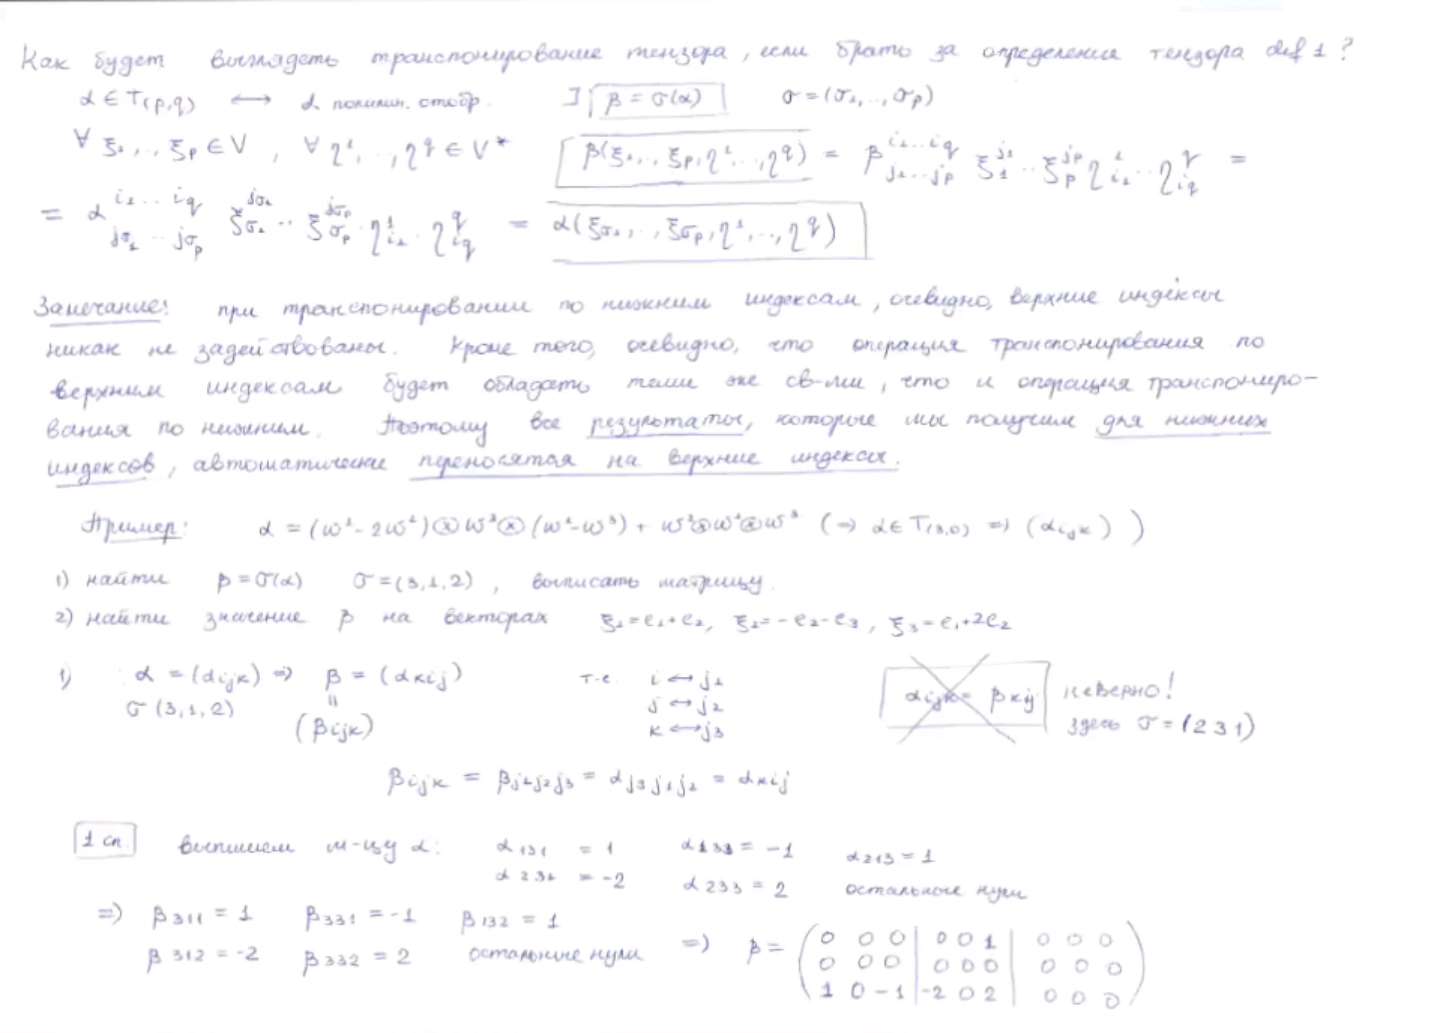 Как будет выглядеть транспонирование тензора, если брать за определение тензора def 1?
α ∈ T(p,q) ⟷ α полилин. отобр. ] β = σ(α) σ = (σ₁,..,σₚ)
∀ ξ₁,..,ξₚ ∈ V, ∀ η¹,..,η^q ∈ V* β(ξ₁,..,ξₚ,η¹,..,η^q) = β^{i₁...i_q}_{j₁...j_p} ξ₁^{j₁}..ξₚ^{jₚ} η¹_{i₁}..η^q_{i_q} =
= α^{i₁...i_q}_{j_{σ₁}...j_{σₚ}} ξ_{σ₁}^{j_{σ₁}}..ξ_{σₚ}^{j_{σₚ}} η¹_{i₁}..η^q_{i_q} = α(ξ_{σ₁},..,ξ_{σₚ},η¹,..,η^q)
Замечание: при транспонировании по нижним индексам, очевидно, верхние индексы
никак не задействованы. Кроме того, очевидно, что операция транспонирования по
верхним индексам будет обладать теми же св-ми, что и операция транспониро-
вания по нижним. Поэтому все результаты, которые мы получим для нижних
индексов, автоматически переносятся на верхние индексы.
Пример: α = (ω¹-2ω²)⊗ω³⊗(ω¹-ω³) + ω²⊗ω¹⊗ω³ (⇒ α∈T(3,0) ⇒ (α_{ijk}))
1) найти β=σ(α) σ=(3,1,2), выписать матрицу.
2) найти значение β на векторах ξ₁=e₁+e₂, ξ₂=-e₂-e₃, ξ₃=e₁+2e₂
1) α = (α_{ijk}) ⇒ β = (α_{kij}) т.е. i ↔ j₁ α_{ijk} = β_{kij} неверно!
σ (3,1,2) = (β_{ijk}) j ↔ j₂ здесь σ = (2 3 1)
k ↔ j₃
β_{ijk} = β_{j₁j₂j₃} = α_{j₃j₁j₂} = α_{kij}
1 сп. выпишем м-цу α: α₁₃₁ = 1 α₁₃₃ = -1 α₂₁₃ = 1
α₂₃₁ = -2 α₂₃₃ = 2 остальные нули
⇒ β₃₁₁ = 1 β₃₃₁ = -1 β₁₃₂ = 1
β₃₁₂ = -2 β₃₃₂ = 2 остальные нули ⇒ β =
0 0 0 | 0 0 1 | 0 0 0
0 0 0 | 0 0 0 | 0 0 0
1 0 -1 | -2 0 2 | 0 0 0